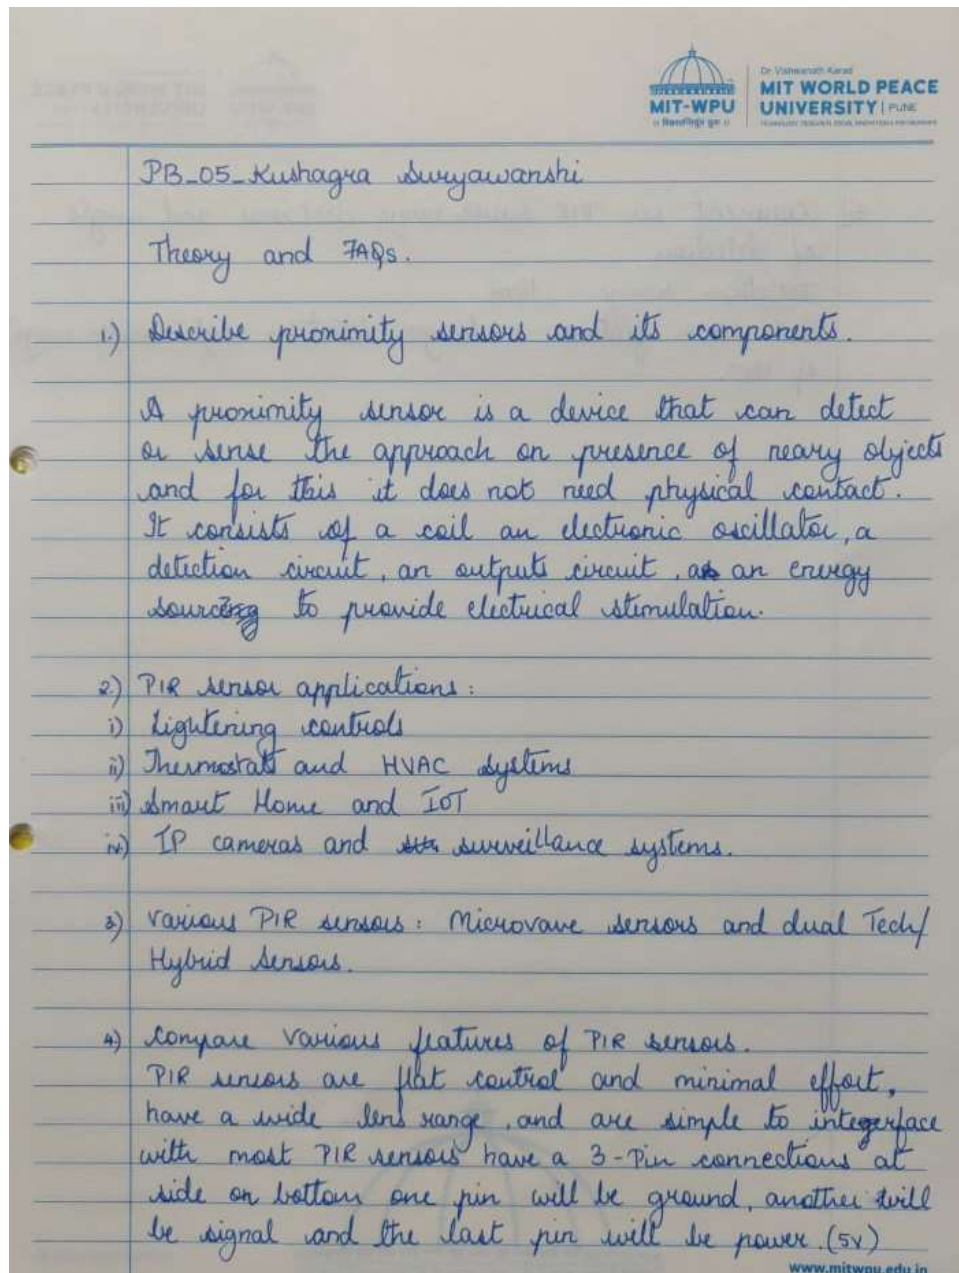 Dr. Vishwanath Karad
MIT WORLD PEACE
UNIVERSITY | PUNE
MIT-WPU
PB_05_Kushagra Suryawanshi
Theory and FAQs.
1.) Describe proximity sensors and its components.
A proximity sensor is a device that can detect
or sense the approach on presence of neary objects
and for this it does not need physical contact.
It consists of a coil an electronic oscillator, a
detection circuit, an outputs circuit, an energy
sourcing to provide electrical stimulation.
2.) PIR sensor applications:
i) Lightening controls
ii) Thermostats and HVAC systems
iii) Smart Home and IOT
iv) IP cameras and surveillance systems.
3) Various PIR sensors: Microvave sensors and dual Tech/
Hybrid Sensors.
4) Compare various features of PIR sensors.
PIR sensors are flat control and minimal effort,
have a wide lens range, and are simple to integerface
with most PIR sensors have a 3-Pin connections at
side on bottom one pin will be ground, another will
be signal and the last pin will be power. (5V)
www.mitwpu.edu.in